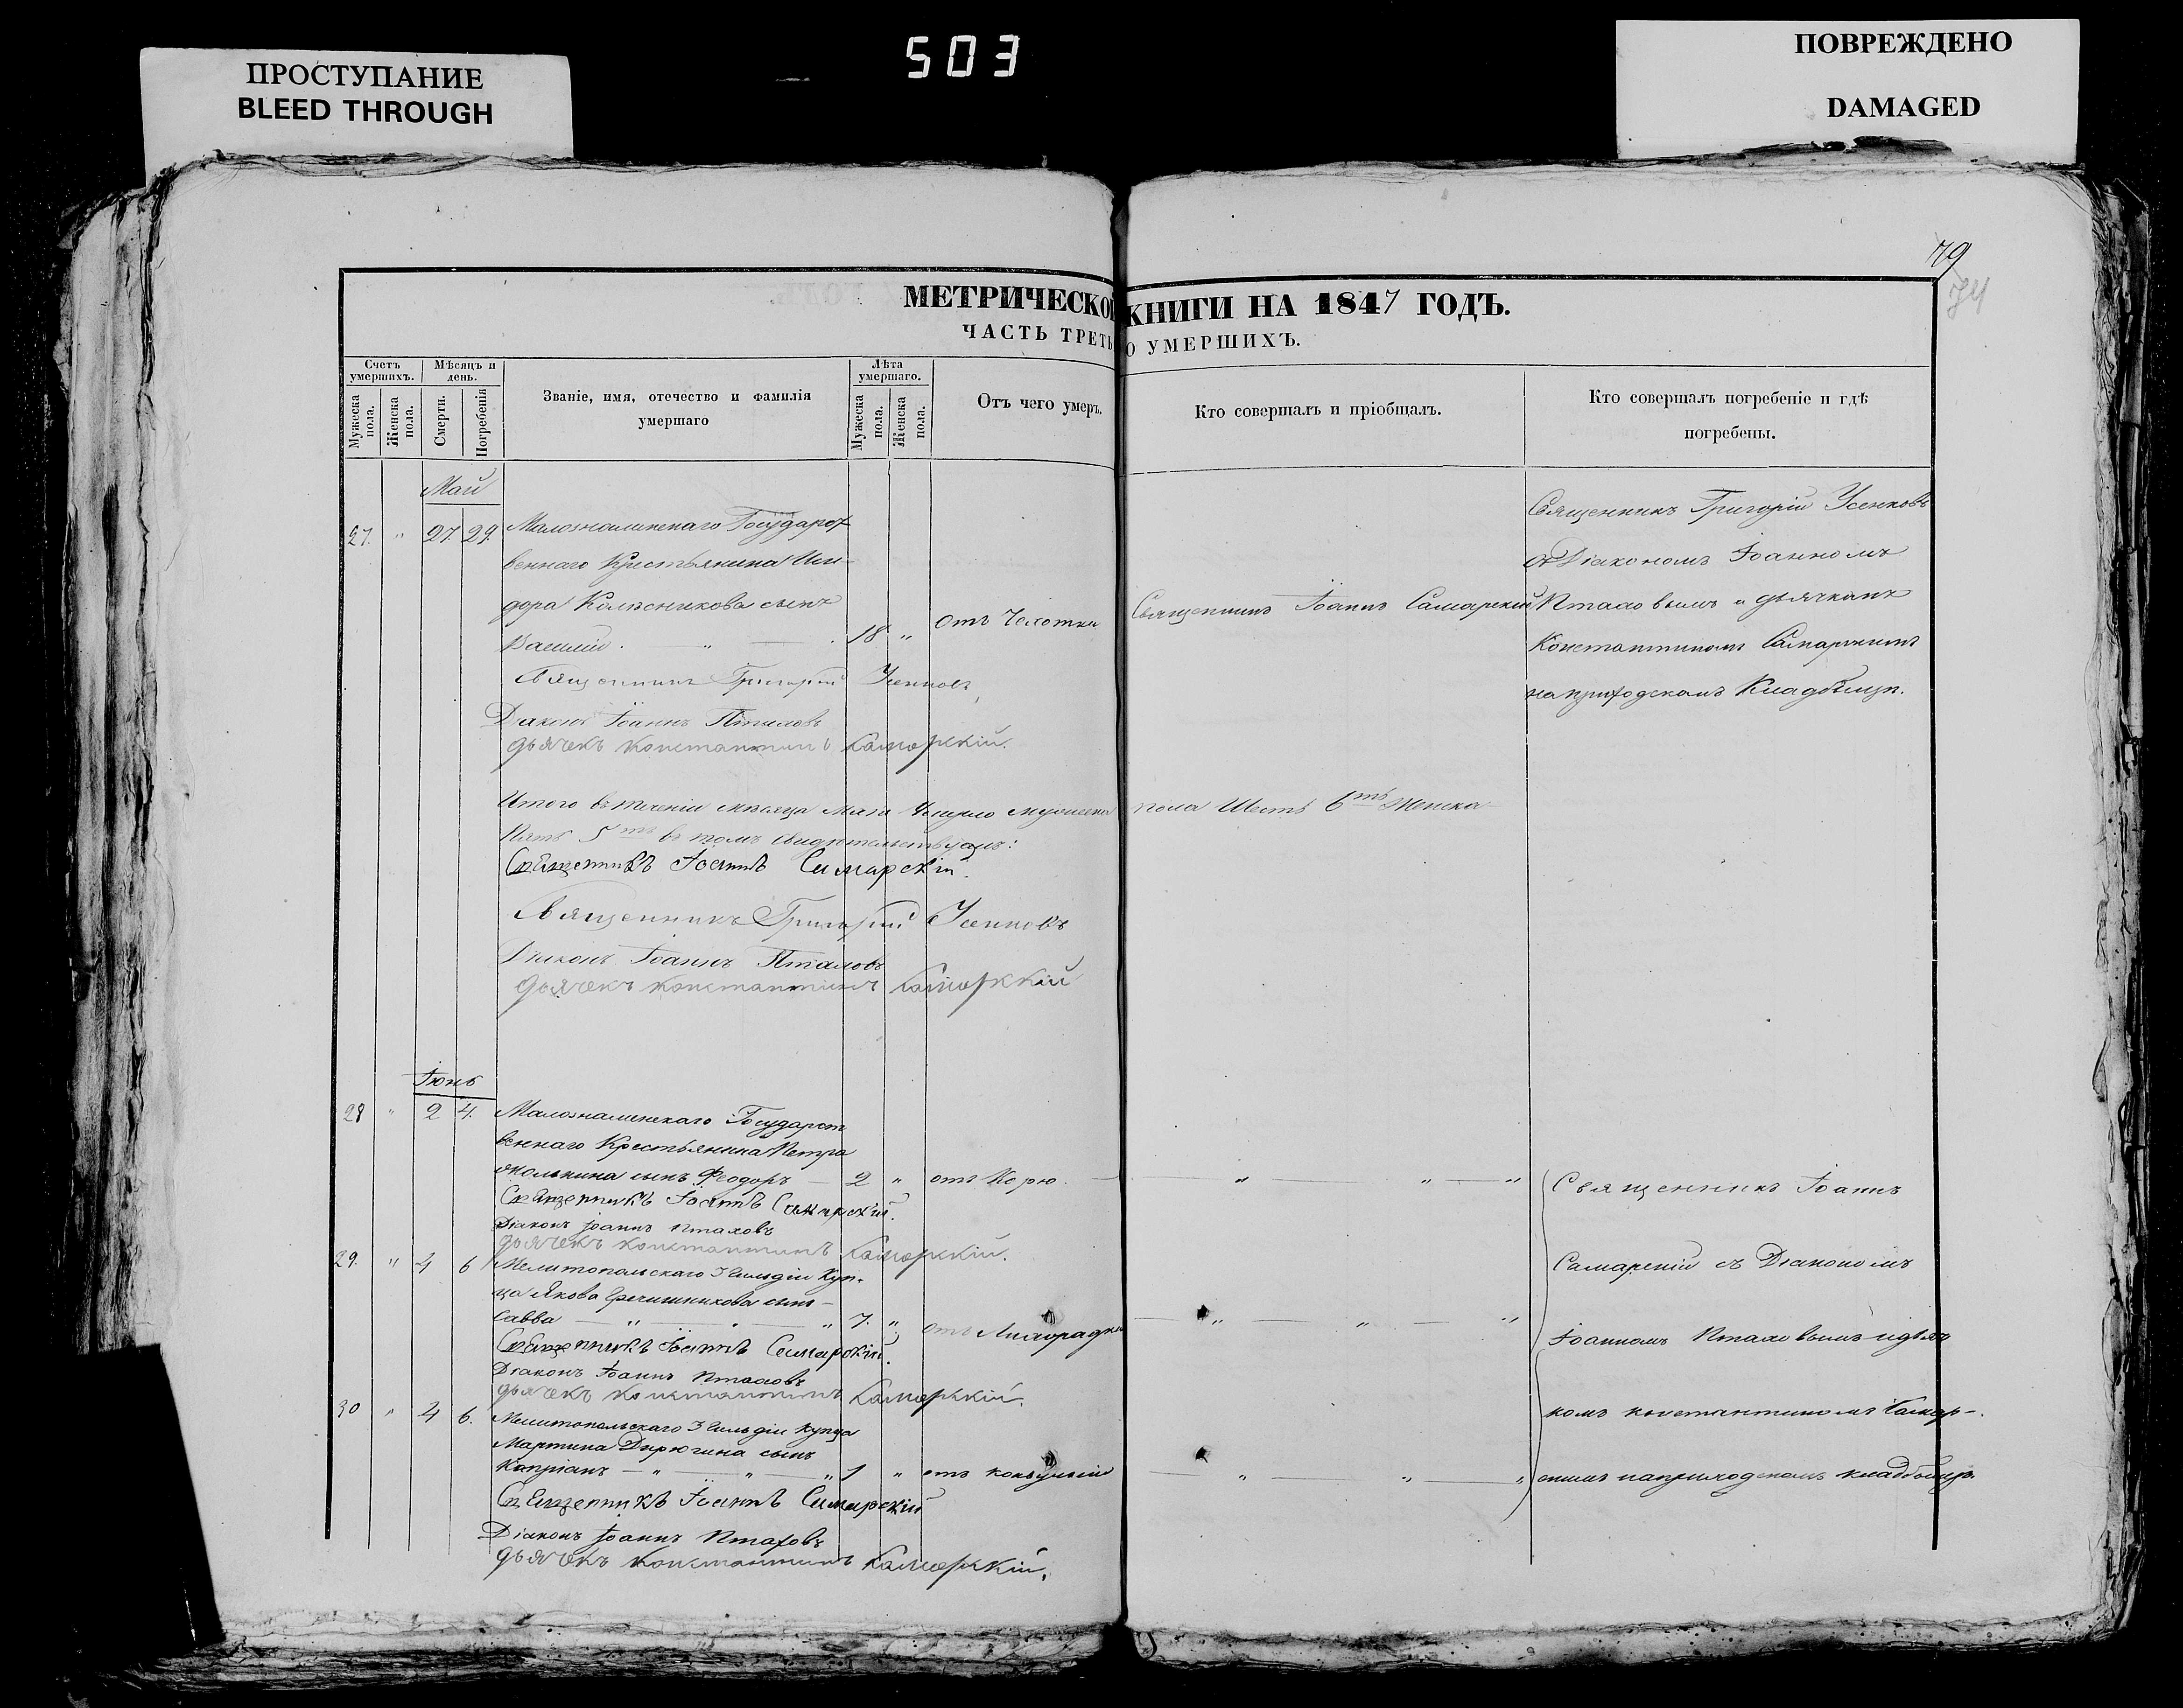 503
ПРОСТУПАНИЕ
BLEED THROUGH
ПОВРЕЖДЕНО
DAMAGED
79
74
МЕТРИЧЕСКОЙ КНИГИ НА 1847 ГОДЪ.
ЧАСТЬ ТРЕТЬ О УМЕРШИХЪ.
Счетъ умершихъ.
Мѣсяцъ и день.
Званіе, имя, отечество и фамилія умершаго
Лѣта умершаго.
Отъ чего умеръ.
Кто совершалъ и пріобщалъ.
Кто совершалъ погребеніе и гдѣ погребены.
Мужеска пола.
Женска пола.
Смерти.
Погребенія
Мужеска пола.
Женска пола.
Май
27. " 27. 29.
Малознаменскаго Государст
веннаго Крестьянина Иси-
дора Колесникова сынъ
Василій. " 18 " отъ Чахотки
Священникъ Іоаннъ Самарскій
Священникъ Григорій Усенковъ
съ Діакономъ Іоанномъ
Птаховымъ и дьячкомъ
Константиномъ Самарскимъ
на приходскомъ Кладбищѣ.
Священникъ Григорій Усенковъ
Діаконъ Іоаннъ Птаховъ
дьячекъ Константинъ Самарскій.
Итого въ теченіи мѣсяца Мая Умерло мужеска пола Шесть 6ть Женска
Пять 5ть въ томъ свидѣтельствуемъ:
Священникъ Іоаннъ Самарскій.
Священникъ Григорій Усенковъ
Діаконъ Іоаннъ Птаховъ
дьячекъ Константинъ Самарскій
Іюнь
28 " 2 4.
Малознаменскаго Государст
веннаго Крестьянина Петра
сынъ Феодоръ — 2 " отъ Корю. — " — " — "
Священникъ Іоаннъ Самарскій.
Діаконъ Іоаннъ Птаховъ
дьячекъ Константинъ Самарскій.
29. " 4 6
Мелитопольскаго 3 Гильдіи Куп-
ца Якова сынъ
Савва — " — " — " 7. " отъ Лихорадки — " — " — "
Священникъ Іоаннъ Самарскій.
Діаконъ Іоаннъ Птаховъ
дьячекъ Константинъ Самарскій.
30 " 4 6.
Мелитопольскаго 3 Гильдіи Купца
Мартина сынъ
Кипріанъ — " — " — " 1 " отъ конвульсіи — " — " — "
Священникъ Іоаннъ Самарскій
Діаконъ Іоаннъ Птаховъ
дьячекъ Константинъ Самарскій.
Священникъ Іоаннъ
Самарскій съ Діакономъ
Іоанномъ Птаховымъ и дьяч
комъ Константиномъ Самар-
скимъ на приходскомъ кладбищѣ.